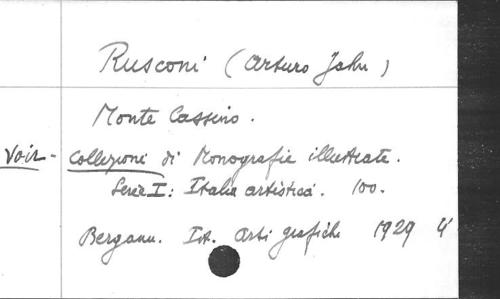 Rusconi (Arturo Jahn)
Monte Cassino.
Voir - Collezioni di Monografie illustrate.
Serie I: Italia artistica. 100.
Bergamo. Ist. Arti grafiche 1929 4°